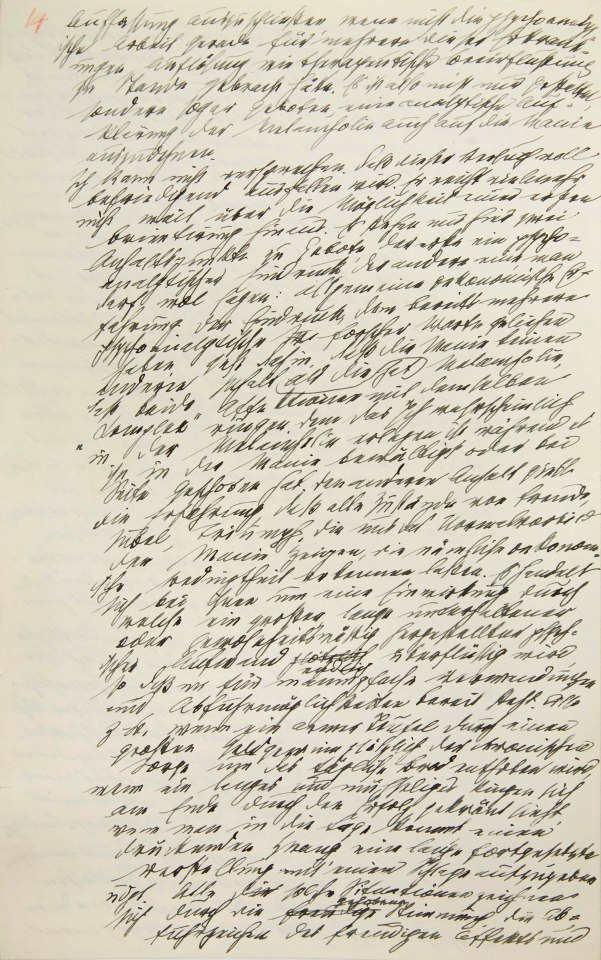 4
Auffassung auszuschließen wenn nicht die psychoanalyt-
ische Arbeit gerade für mehrere dieser Erkrank-
ungen Auflösung wie therapeutische Beeinflussung
zu Stande gebracht hätte. Es ist also nicht nur gestattet,
sondern sogar geboten, eine analytische Auf-
klärung der Melancholie auch auf die Manie
auszudehnen.
Ich kann nicht versprechen, daß dieser Versuch voll
befriedigend ausfallen wird. Er reicht vielmehr
nicht weit über die Möglichkeit einer ersten
Orientirung hinaus. Es stehen uns hier zwei
Anhaltspunkte zu Gebote, der erste ein psycho-
analytischer Eindruck, der andere eine man
darf wol sagen: allgemeine oekonomische Er-
fahrung. Der Eindruck, dem bereits mehrere
psychoanalytische Forscher Worte geliehen
haben, geht dahin, daß die Manie keinen
anderen Inhalt hat als die Melancholie,
daß beide Affektionen mit demselben
„Complex“ ringen, dem das Ich wahrscheinlich
in der Melancholie erlegen ist während es
ihn in der Manie bewältigt oder bei
Seite geschoben hat. Den anderen Anhalt giebt
die Erfahrung, daß alle Zustände von Freude,
Jubel, Triumph, die uns das Normalvorbild
der Manie zeigen, die nämliche oekonom-
ische Bedingtheit erkennen lassen. Es handelt
sich bei ihnen um eine Einwirkung, durch
welche ein großer, lange unterhaltener
oder gewohnheitsmäßig hergestellter psych-
ischer Aufwand endlich überflüssig wird
so daß er für mannigfache Verwendungen
und Abfuhrmöglichkeiten bereit steht. Also
z.B. wenn ein armer Teufel durch einen
großen Geldgewinn plötzlich der chronischen
Sorge um das tägliche Brod enthoben wird,
wenn ein langes und mühseliges Ringen sich
am Ende durch den Erfolg gekrönt sieht
wenn man in die Lage kommt einen
drückenden Zwang, eine lange fortgesetzte
Verstellung mit einem Schlage aufzugeben
udgl. Alle solche Situationen zeichnen
sich durch die gehobene Stimmung, die Ab-
fuhrzeichen des freudigen Affekts und